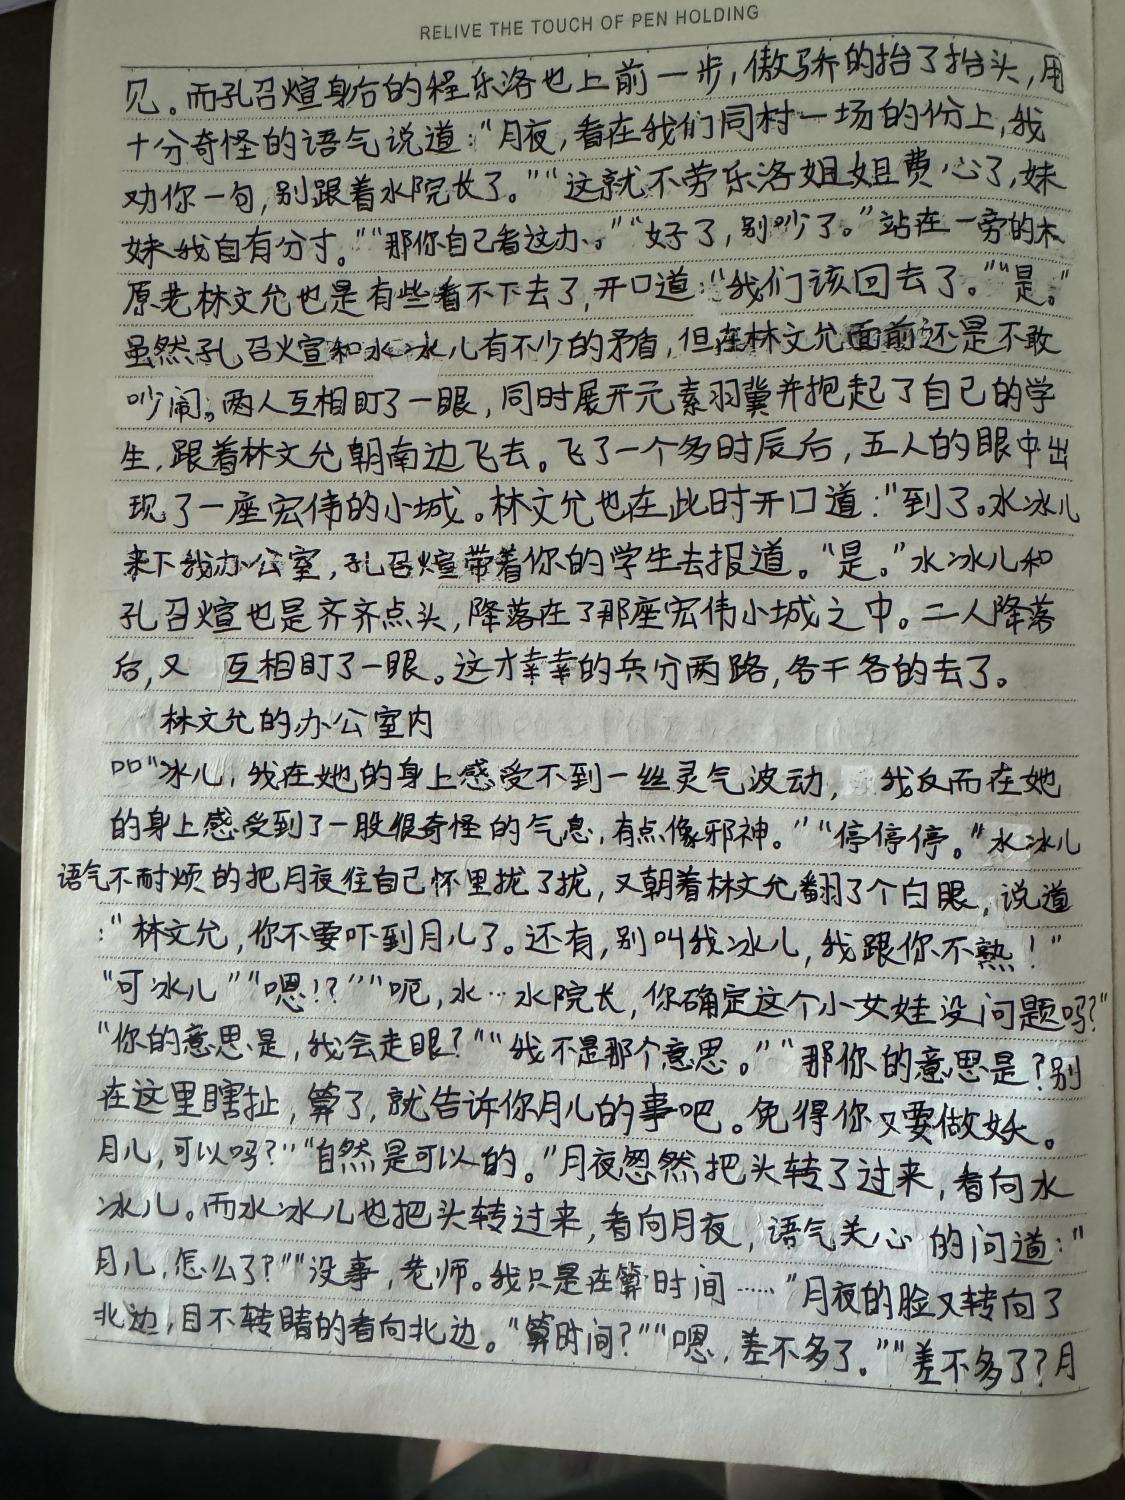 RELIVE THE TOUCH OF PEN HOLDING
见。而孔召煊身后的程乐洛也上前一步，傲骄的抬了抬头，用
十分奇怪的语气说道：“月夜，看在我们同村一场的份上，我
劝你一句，别跟着水院长了。”“这就不劳乐洛姐姐费心了，妹
妹我自有分寸。”“那你自己看这办。”“好了，别吵了。”站在一旁的木
原老林文允也是有些看不下去了，开口道：“我们该回去了。”“是。”
虽然孔召煊和水冰儿有不少的矛盾，但在林文允面前还是不敢
吵闹。两人互相盯了一眼，同时展开元素羽翼并抱起了自己的学
生，跟着林文允朝南边飞去。飞了一个多时辰后，五人的眼中出
现了一座宏伟的小城。林文允也在此时开口道：“到了。水冰儿
来下我办公室，孔召煊带着你的学生去报道。“是。”水冰儿和
孔召煊也是齐齐点头，降落在了那座宏伟小城之中。二人降落
后，又 互相盯了一眼。这才幸幸的兵分两路，各干各的去了。
林文允的办公室内
“冰儿，我在她的身上感受不到一丝灵气波动， 我反而在她
的身上感受到了一股很奇怪的气息，有点像邪神。”“停停停。”水冰儿
语气不耐烦的把月夜往自己怀里拢了拢，又朝着林文允翻了个白眼，说道
：“林文允，你不要吓到月儿了。还有，别叫我冰儿，我跟你不熟！”
“可冰儿”“嗯！？”“呃，水…水院长，你确定这个小女娃没问题吗？”
“你的意思是，我会走眼？”“我不是那个意思。”“那你的意思是？别
在这里瞎扯，算了，就告诉你月儿的事吧。免得你又要做妖。
月儿，可以吗？”“自然是可以的。”月夜忽然把头转了过来，看向水
冰儿。而水冰儿也把头转过来，看向月夜，语气关心的问道：“
月儿，怎么了？”“没事，老师。我只是在算时间……”月夜的脸又转向了
北边，目不转睛的看向北边。“算时间？”“嗯，差不多了。”“差不多了？月